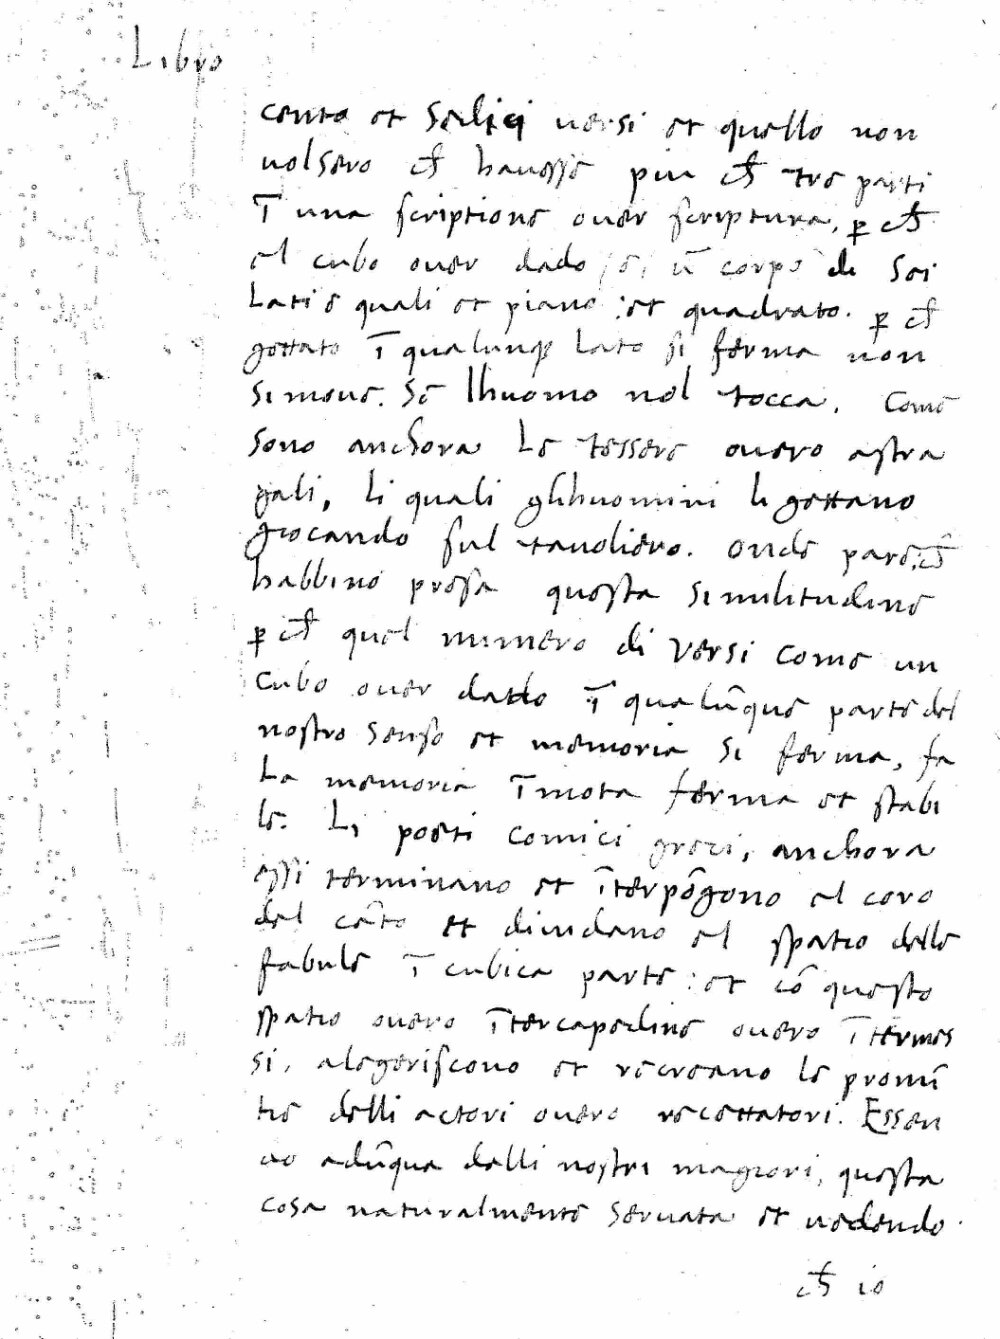 Libro
cento et sedici uersi et quello non
uolsero ch̄ hauesse piu ch̄ tre parti
ī una scriptione ouer scriptura, ꝑ ch̄
el cubo ouer dado e, ū corpo di sei
Lati e quali et piano : et quadrato. ꝑ ch̄
gettato ī qualunqꝫ Lato si ferma non
si moue. Se lhuomo nol tocca. Come
sono anchora Le tessere ouero astra
gali, Li quali glihuomini li gettano
giocando sul tauoliero. onde pare, ch̄
habbino presa questa similitudine
ꝑ ch̄ quel numero di versi come un
cubo ouer dado ī qualūque parte del
nostro senso et memoria si ferma, fa
La memoria īmota ferma et stabi
le. Li poeti comici greci, anchora
essi terminano et īterpōgono el coro
del cāto et diuidano el spatio delle
fabule ī cubica parte : et cō questo
spatio ouero ītercapedine ouero ītermes
si, alegeriscono et recreano le pronū
tie delli actori ouero recettatori. Essen
do adūqua dalli nostri magiori, questa
cosa naturalmente seruata et uedendo
ch̄ io